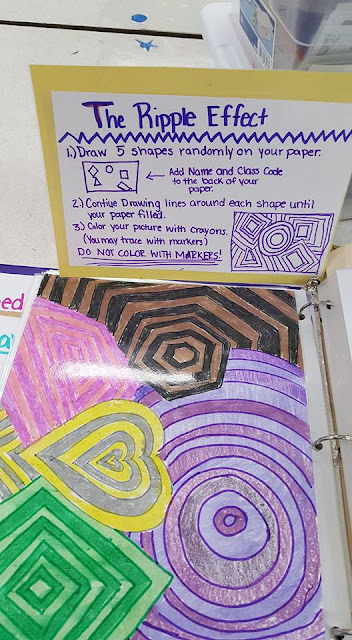 The Ripple Effect
1.) Draw 5 shapes randomly on your paper.
← Add Name and Class Code
to the back of your
paper.
2.) Contiue Drawing lines around each shape until
your paper filled.
3.) Color your picture with crayons.
(You may trace with markers)
DO NOT COLOR WITH MARKERS!
eed